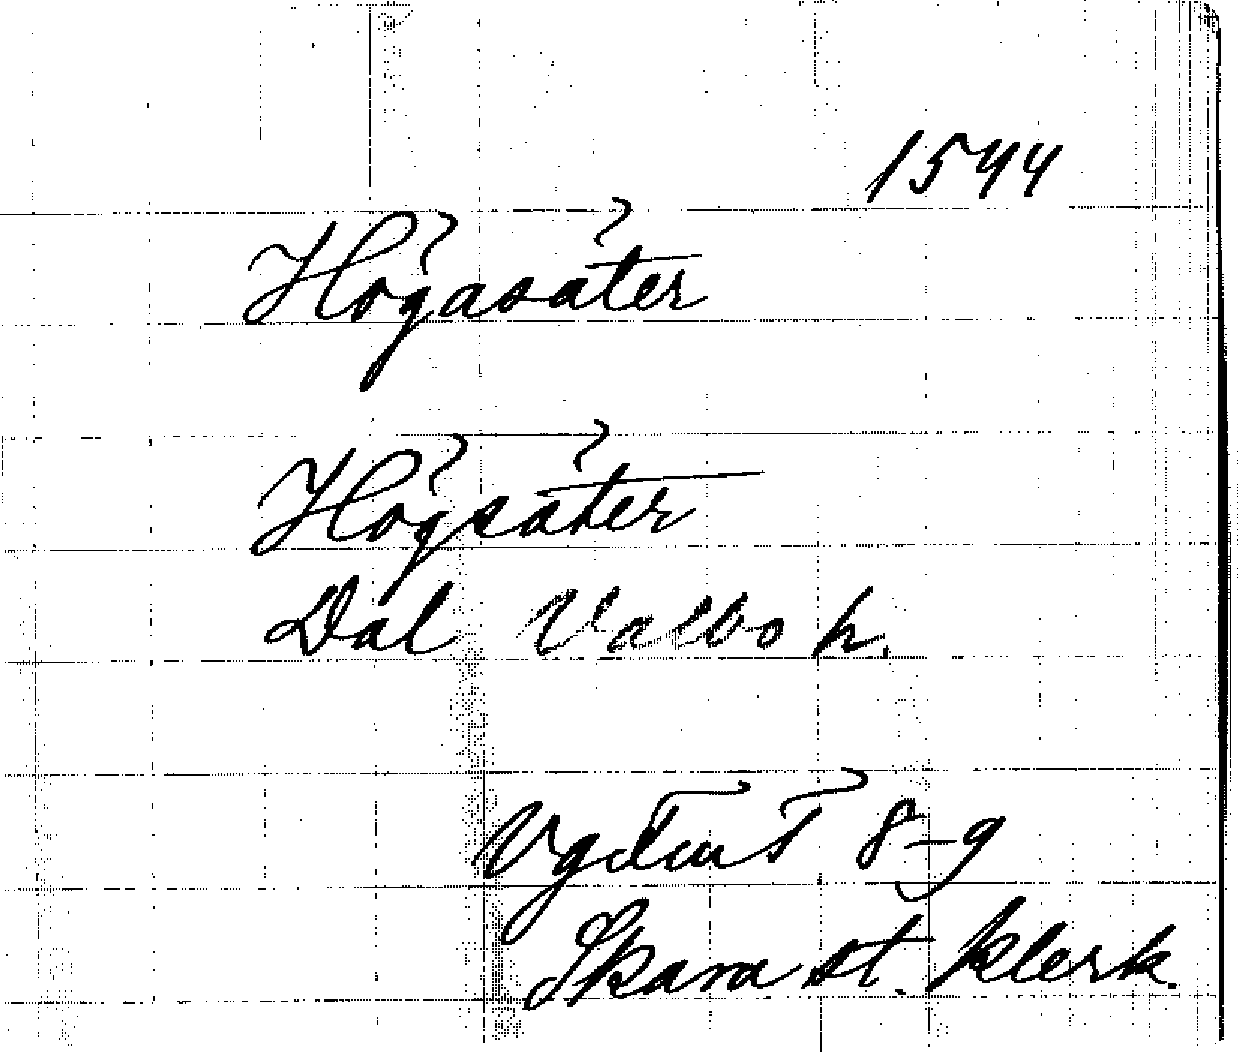 1544
Högasäter
Högsäter
Dal Valbo h.
Vg 8-9
Skara st. klerk.